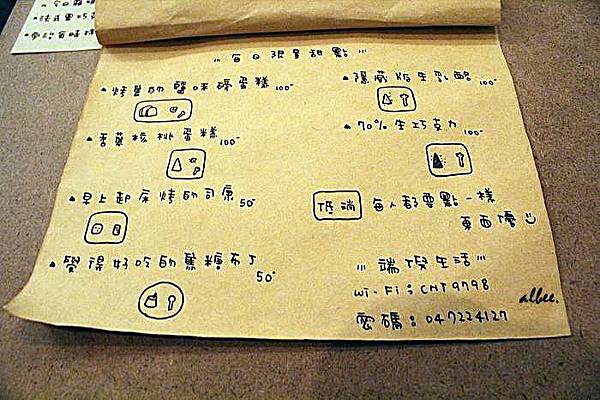 今日
法式
/// 每日限量甜點 ///
烤 的鹽味磅蛋糕 100-
香蕉核桃蛋糕 100-
早上起床烤的司康 50-
覺得好吃的焦糖布丁 50-
隱藏版生乳酪 100-
70% 生巧克力 100-
低消 每人都要點一樣
東西優
/// 端 生活 ///
Wi-Fi : CHT9798
密碼 : 047224127
albee.